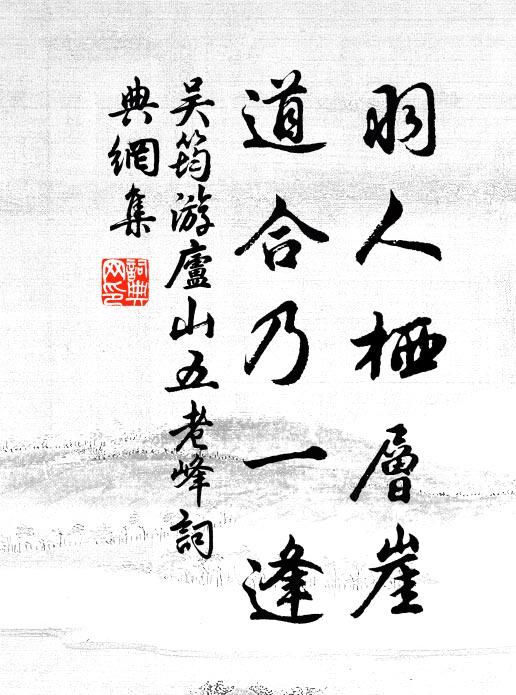 羽人栖層崖
道合乃一逢
吳筠游廬山五老峰詞
典網集
詞典
网印